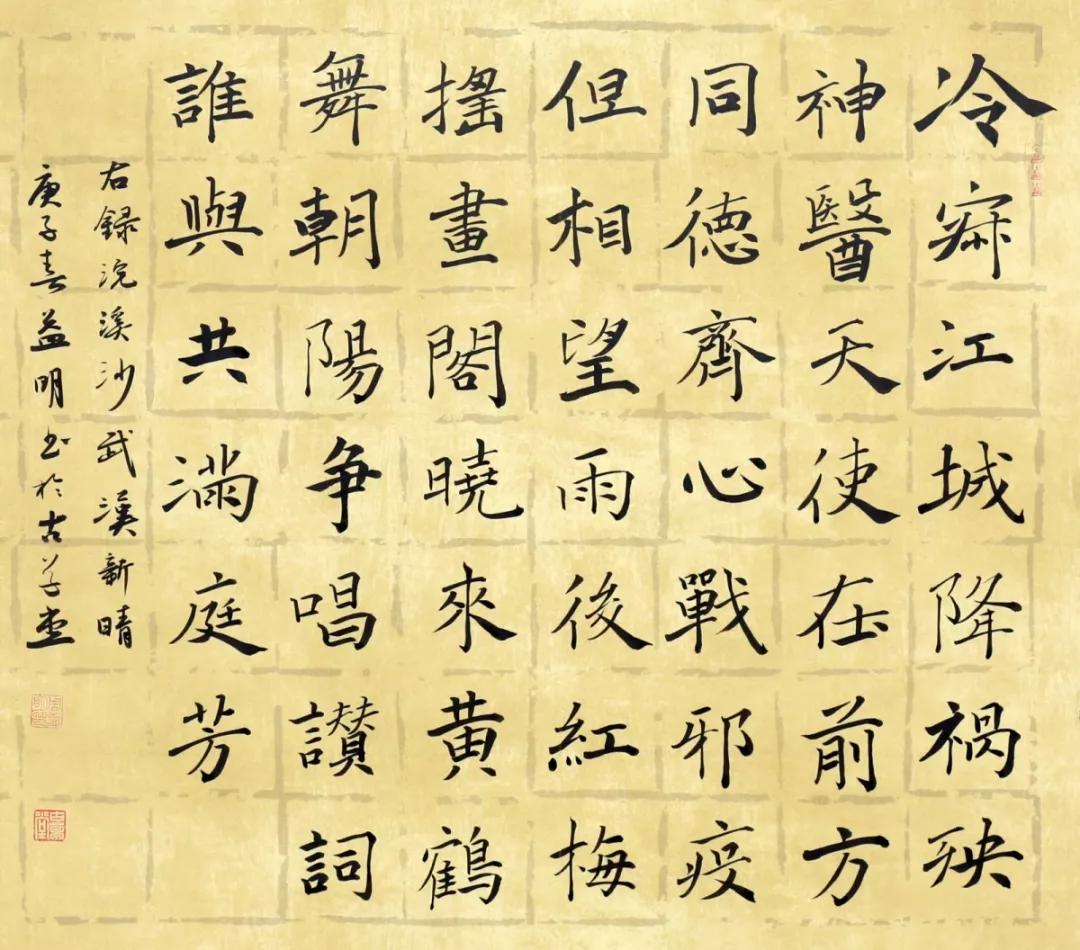 冷寂江城降禍殃
神醫天使在前方
同徳齊心戰邪疫
但相望雨後紅梅
搖畫閣曉來黃鶴
舞朝陽爭唱讚詞
誰與共滿庭芳
右録浣溪沙武漢新晴
庚子春益明书於古草堂